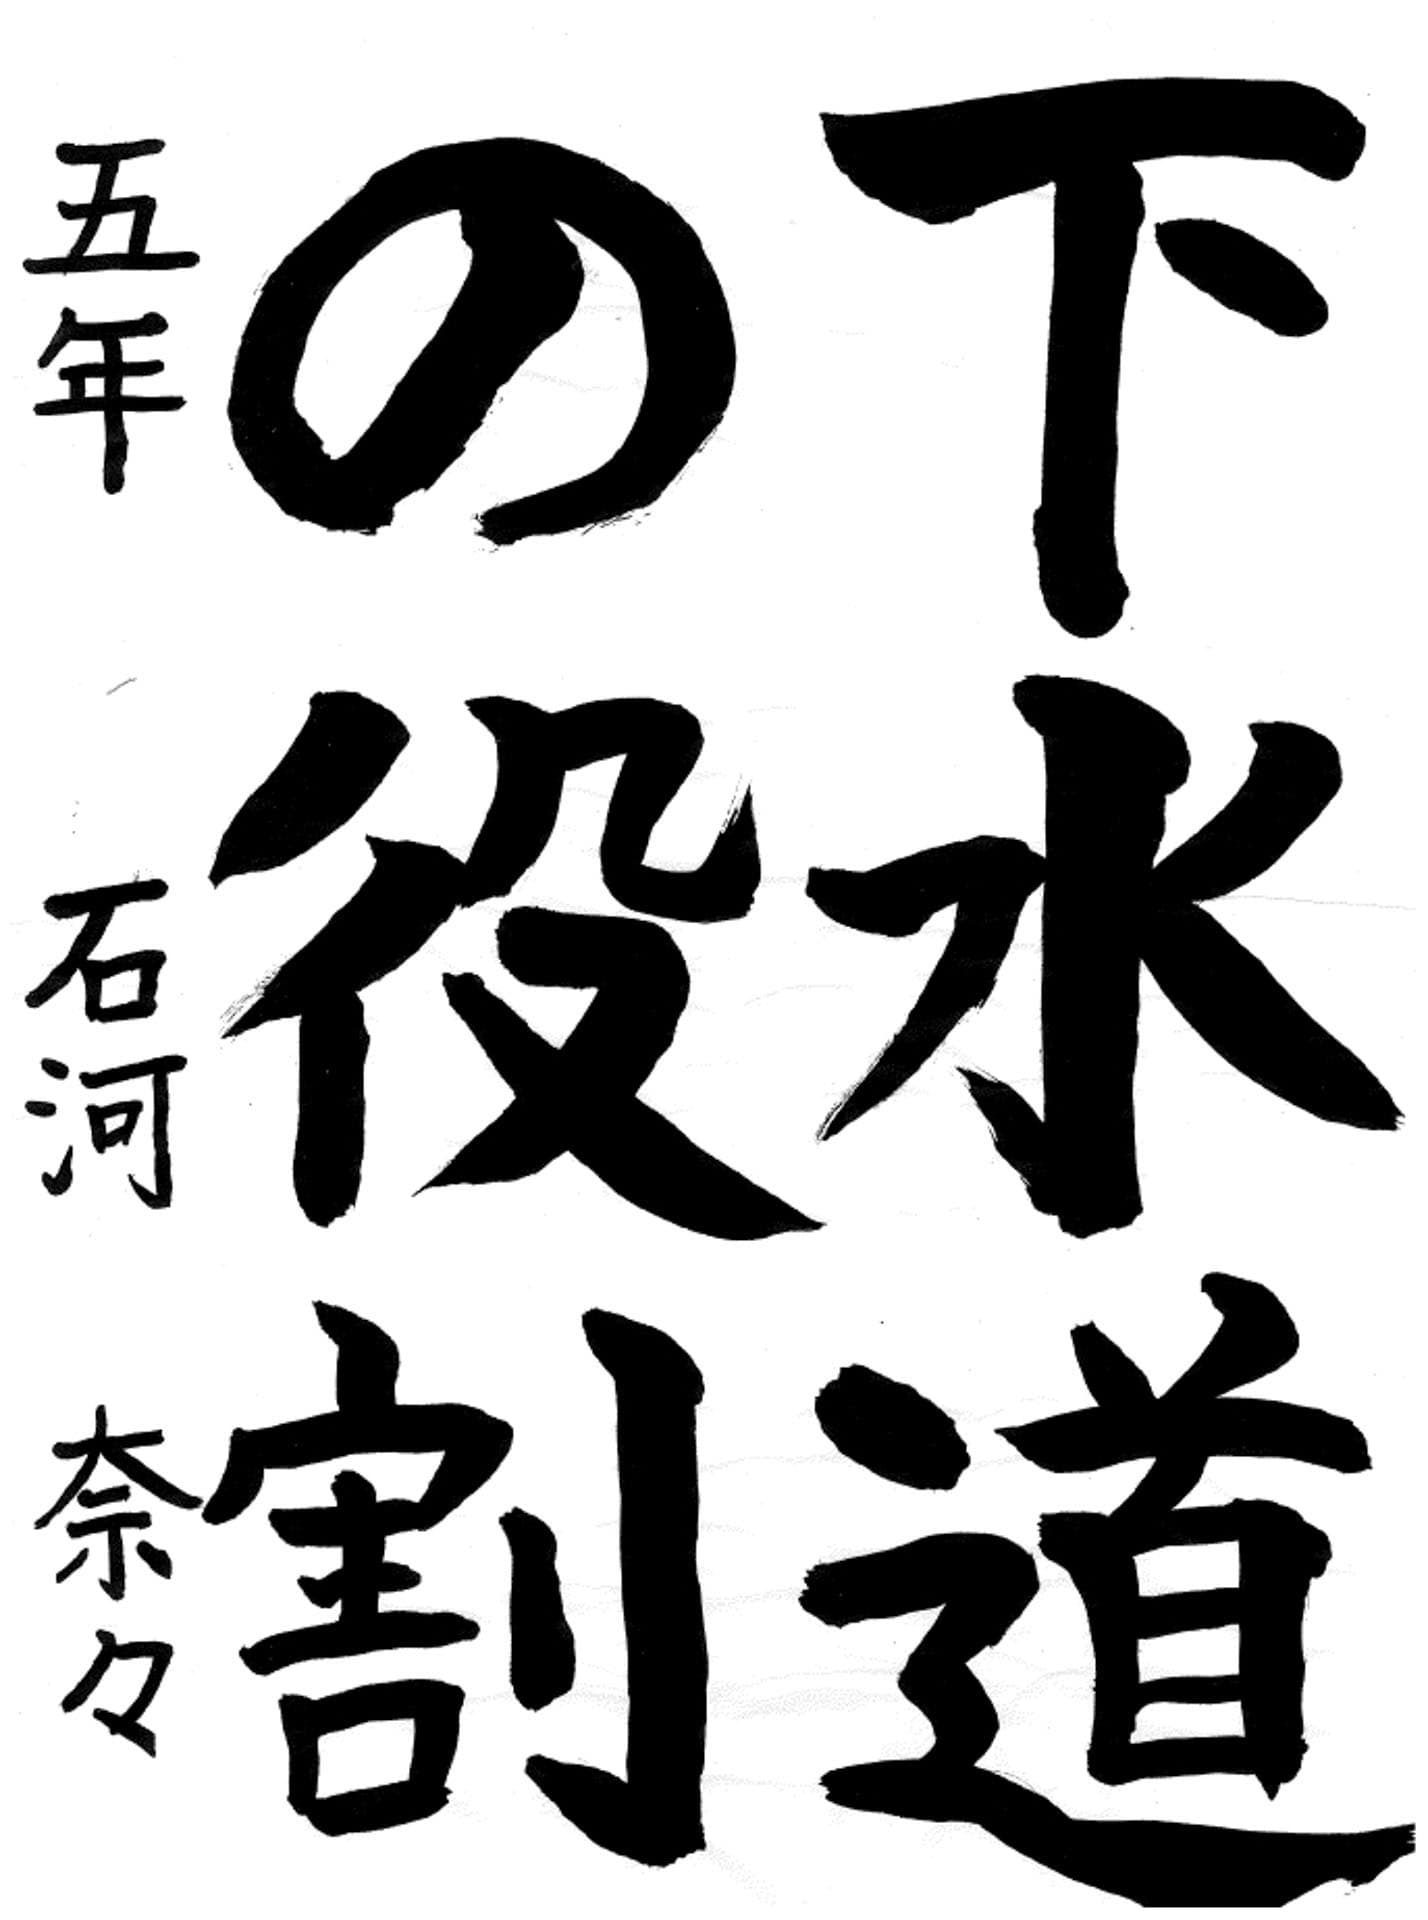 下水道
の役割
五年 石河 奈々